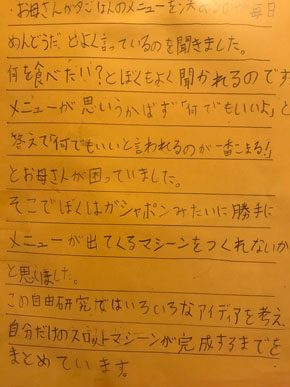 ・お母さんが夕ごはんのメニューを決めるのが毎日
めんどうだとよく言っているのを聞きました。
何を食べたい?とぼくもよく聞かれるのです
メニューが思いうかばず「何でもいいよ」と
答えて「何でもいいと言われるのが一番こまる!」
とお母さんが困っていました。
そこでぼくはガシャポンみたいに勝手に
メニューが出てくるマシーンをつくれないか
と思いました。
この自由研究ではいろいろなアイディアを考え、
自分だけのスロットマシーンが完成するまでを
まとめています。